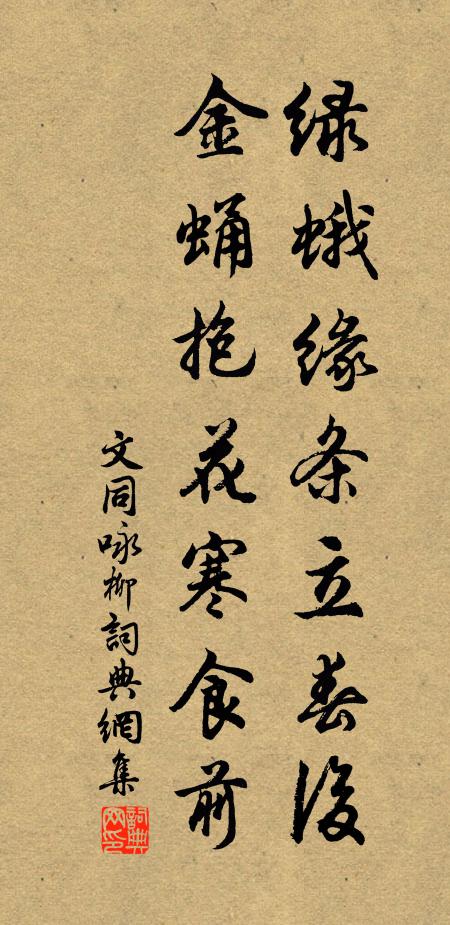 绿蛾缘条立春後
金蛹抱花寒食前
文同咏柳詞典網集
詞典网印